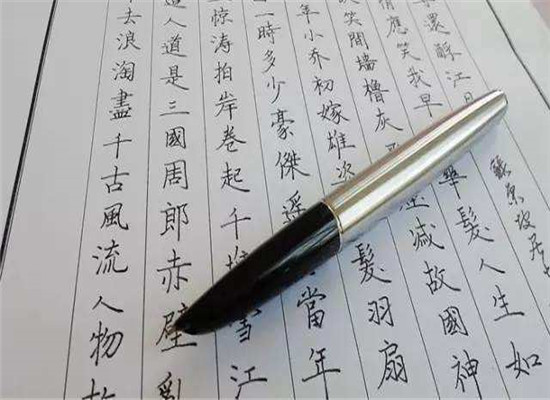 去浪淘盡千古風流人物故
人道是三國周郎赤壁亂
惊涛拍岸卷起千雪江
一時多少豪傑遥當年
年小乔初嫁雄姿髮羽扇
笑間墙櫓灰减故國神
情應笑我早華髮人生如
還酹江月